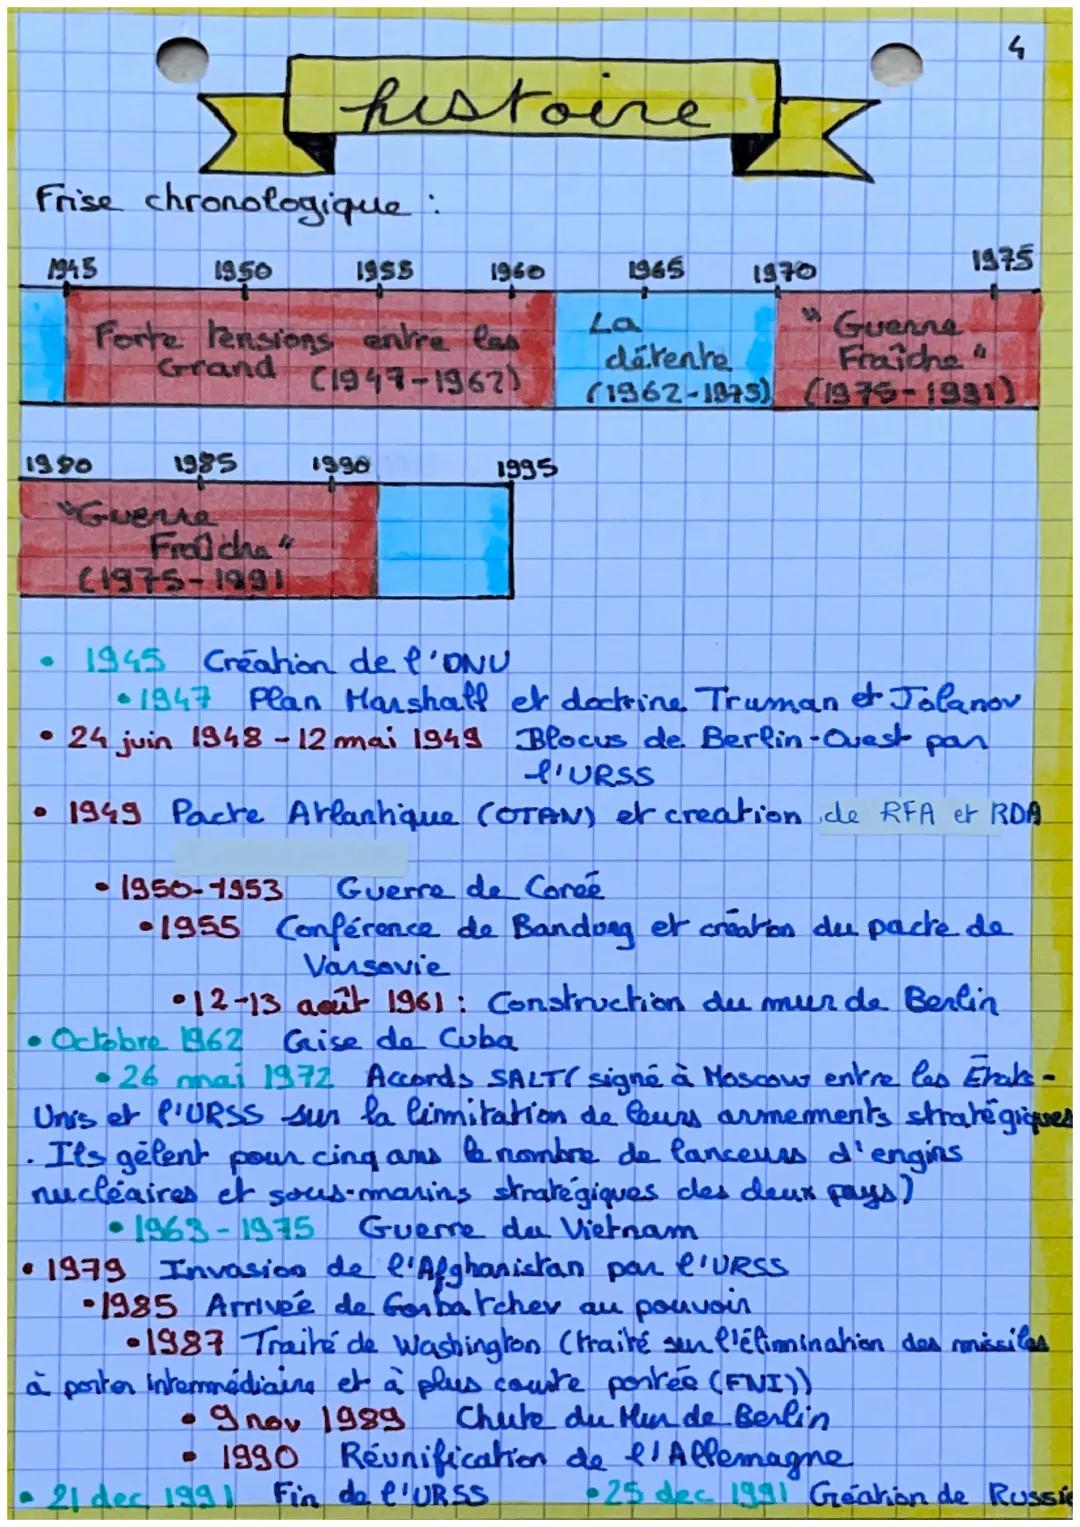 4
histoire
Frise chronologique :
1945 1950 1955 1960 1965 1970 1975
Forte tensions entre les
Grand (1947-1962)
La
détente
(1962-1975)
"Guerre
Fraîche"
(1975-1991)
1980 1985 1990 1995
"Guerre
Fraîche"
(1975-1991
• 1945 Création de l'ONU
• 1947 Plan Marshall et doctrine Truman et Jdanov
• 24 juin 1948 - 12 mai 1949 Blocus de Berlin-Ouest par
l'URSS
• 1949 Pacte Atlantique (OTAN) et creation de RFA et RDA
• 1950-1953 Guerre de Coreé
• 1955 Conférence de Bandung et création du pacte de
Varsovie
• 12-13 août 1961 : Construction du mur de Berlin
• Octobre 1962 Crise de Cuba
• 26 mai 1972 Accords SALT( signé à Moscou entre les États-
Unis et l'URSS sur la limitation de leurs armements stratégiques
. Ils gèlent pour cinq ans le nombre de lanceurs d'engins
nucléaires et sous-marins stratégiques des deux pays)
• 1963-1975 Guerre du Vietnam
• 1979 Invasion de l'Afghanistan par l'URSS
• 1985 Arrivée de Gorbatchev au pouvoir
• 1987 Traité de Washington (traité sur l'élimination des missiles
à porter intermédiaire et à plus courte portée (FNI))
• 9 nov 1989 Chute du Mur de Berlin
• 1990 Réunification de l'Allemagne
• 21 dec 1991 Fin de l'URSS • 25 dec 1991 Création de Russie